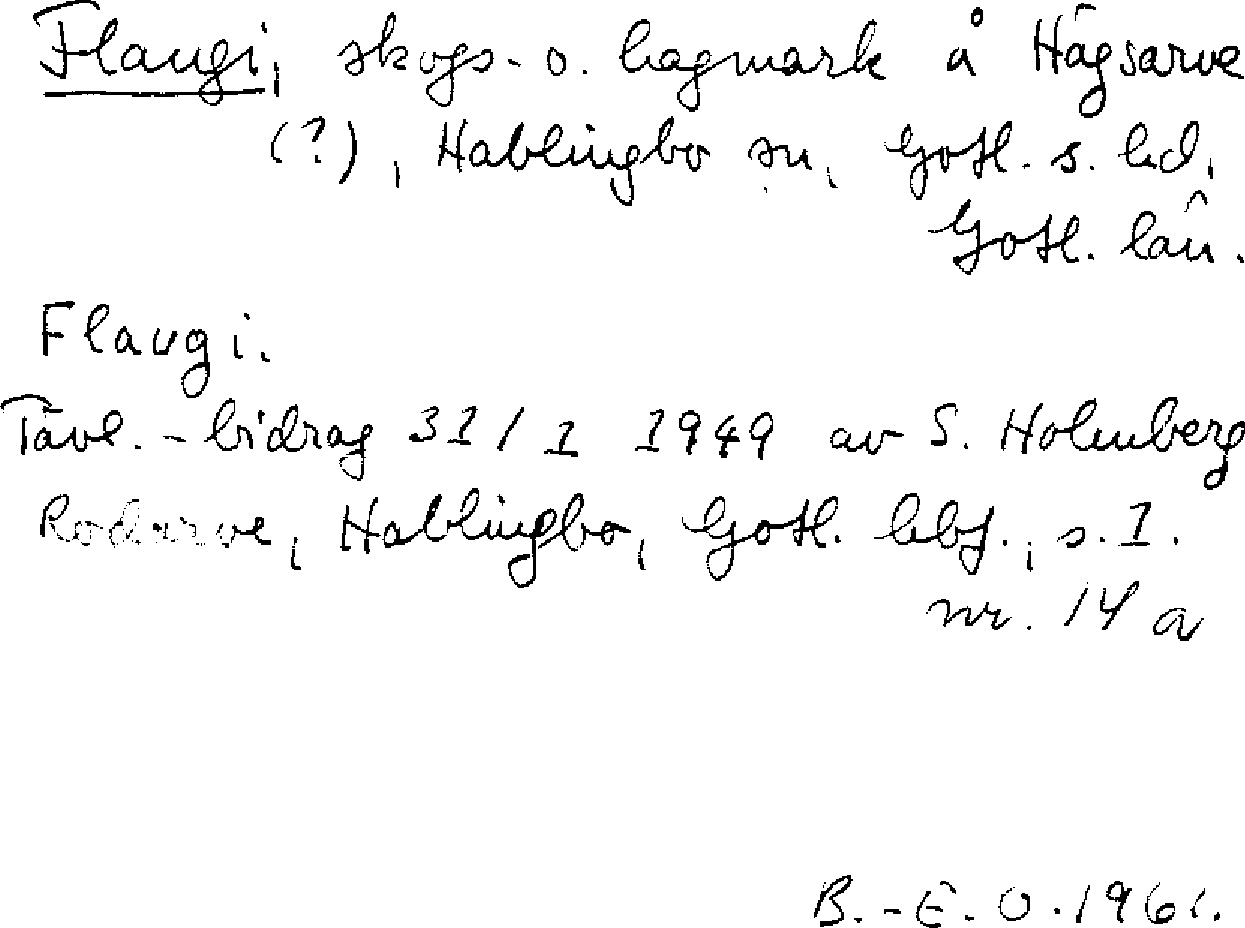 Flaugi, skogs- o. hagmark å Hägsarve
(?), Hablingbo sn, Gotl. s. hd,
Gotl. län.
Flaugi.
Tävl.-bidrag 31/1 1949 av S. Holmberg
Rodarve, Hablingbo, Gotl. hbf., s. 1.
nr. 14 a
B.-E. O. 1961.